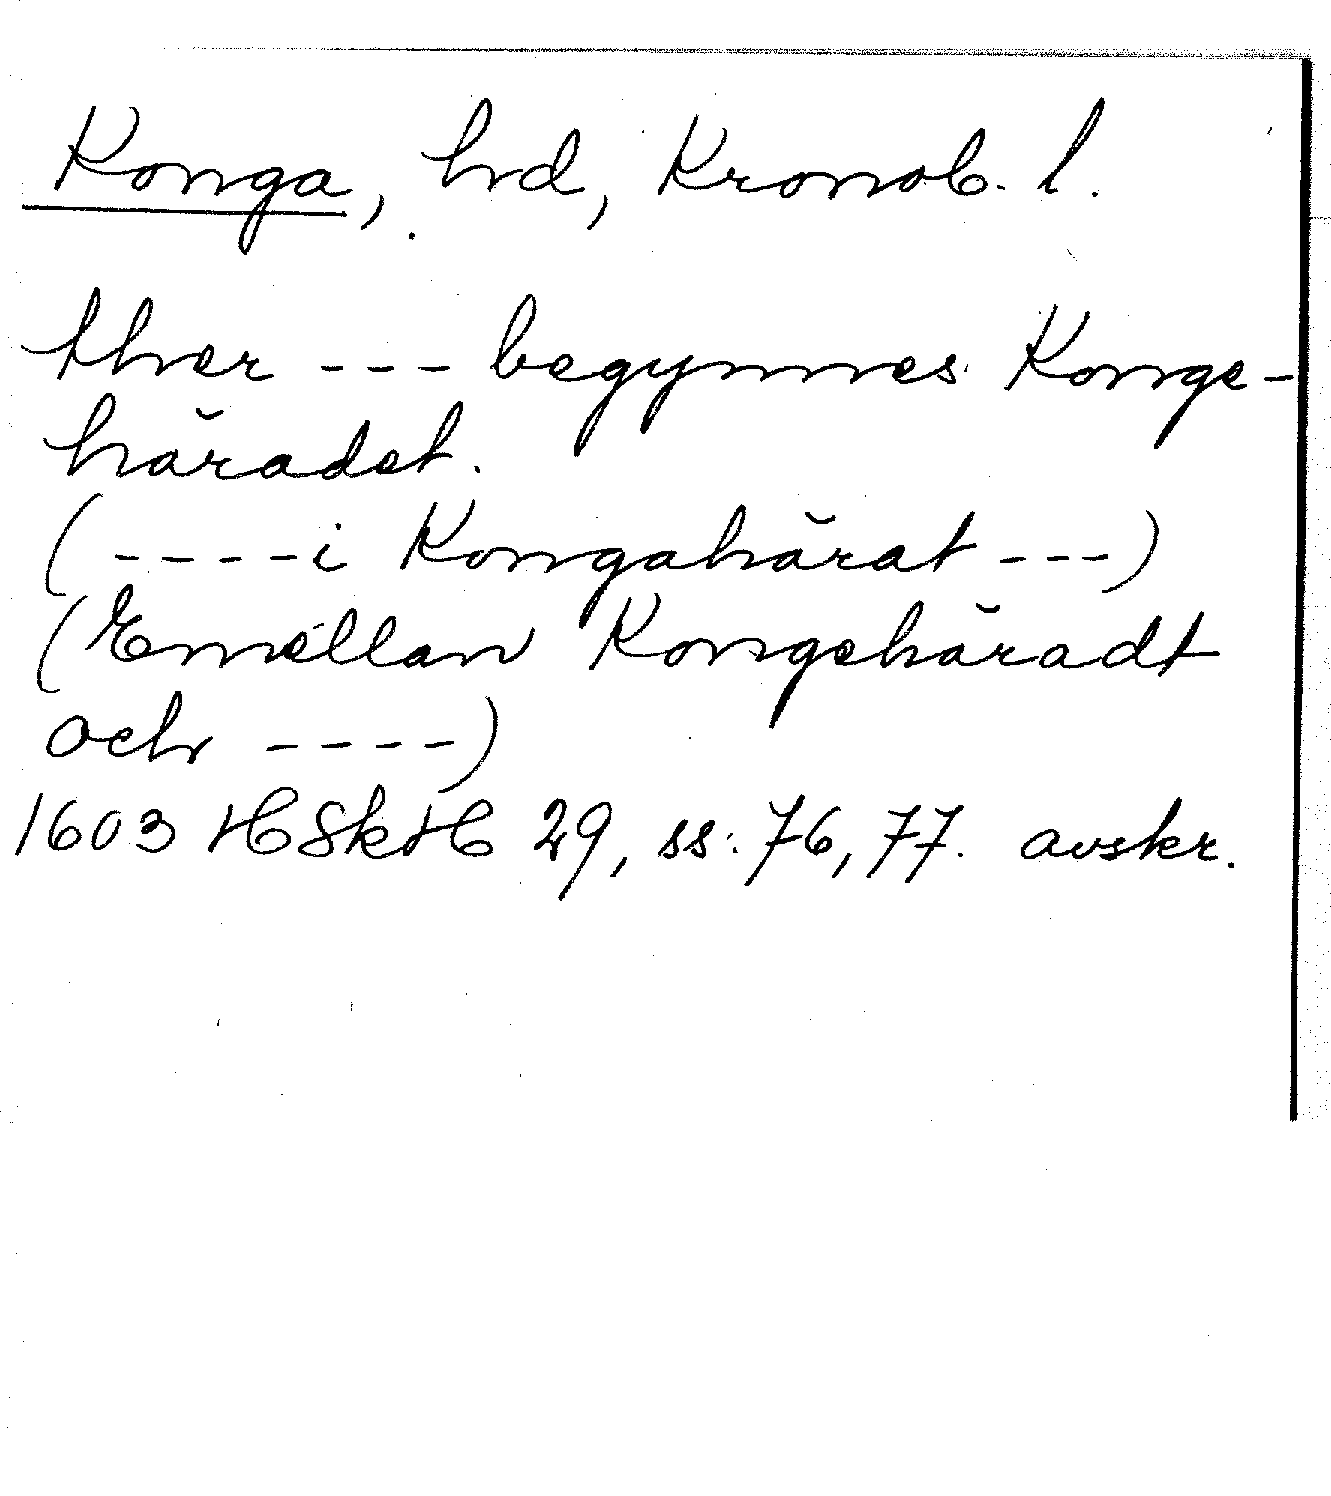 Konga, hd, Kronob. l.
ther --- begynnes Konge-
häradet.
(----i Kongahärat ---)
(Emellan Kongehäradt
och ----)
1603 HSkH 29, ss. 76, 77. avskr.